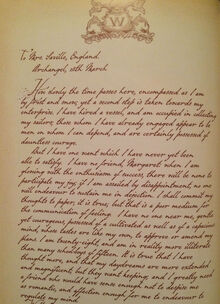 W
To Mrs. Saville, England.
Archangel, 28th March
How slowly the time passes here, encompassed as I am
by frost and snow; yet a second step is taken towards my
enterprise. I have hired a vessel, and am occupied in collecting
my sailors; those whom I have already engaged appear to be
men on whom I can depend, and are certainly possessed of
dauntless courage.
But I have one want which I have never yet been
able to satisfy. I have no friend, Margaret: when I am
glowing with the enthusiasm of success, there will be none to
participate my joy; if I am assailed by disappointment, no one
will endeavour to sustain me in dejection. I shall commit my
thoughts to paper, it is true; but that is a poor medium for
the communication of feeling. I have no one near me, gentle
yet courageous, possessed of a cultivated as well as of a capacious
mind, whose tastes are like my own, to approve or amend my
plans. I am twenty-eight, and am in reality more illiterate
than many schoolboys of fifteen. It is true that I have
thought more, and that my daydreams are more extended
and magnificent, but they want keeping; and I greatly need
a friend who would have sense enough not to despise me
as romantic, and affection enough for me to endeavour to
regulate my mind.